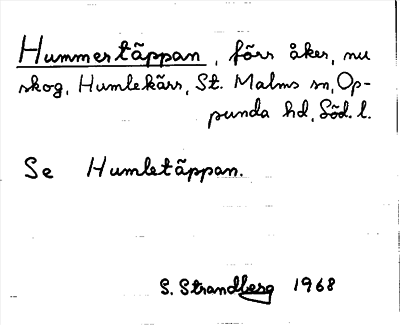 Hummertäppan, förr åker, nu
skog, Humlekärr, St. Malms sn, Op-
punda hd, Söd. l.
Se Humletäppan.
S. Strandberg 1968